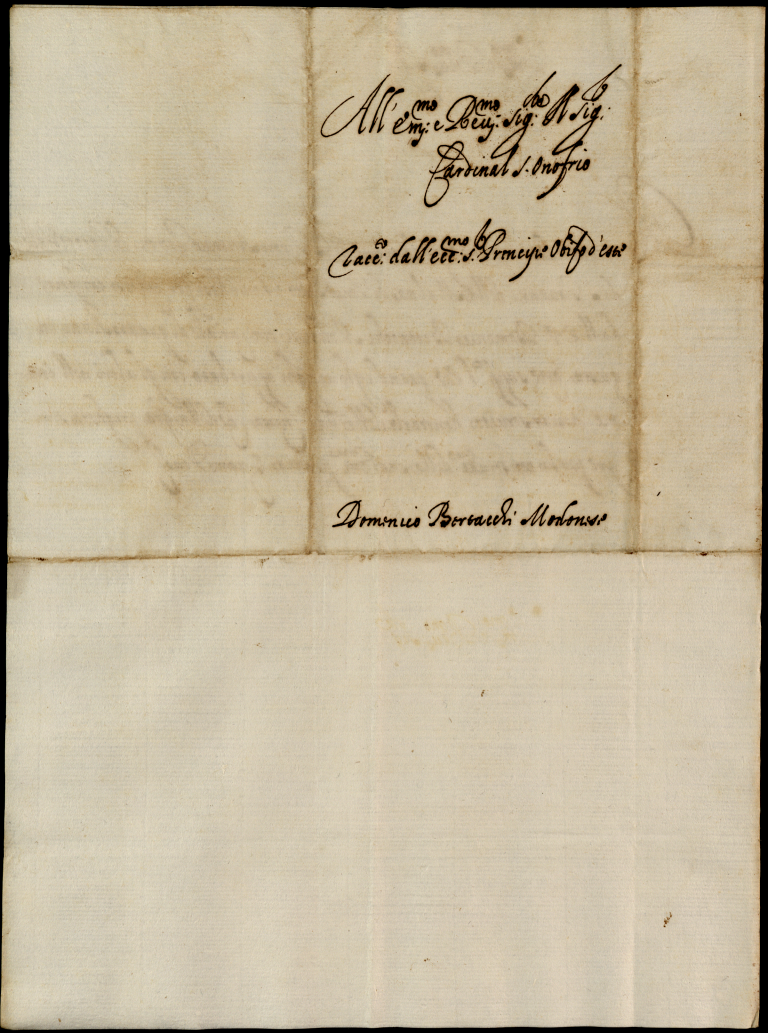 All' Em:mo e Reu:mo Sig:re il Sig:r
Cardinal S. Onofrio
Racc:o dall'ecc:mo S.r Principe Obizo d'este
Domenico Bertacchi Modonese